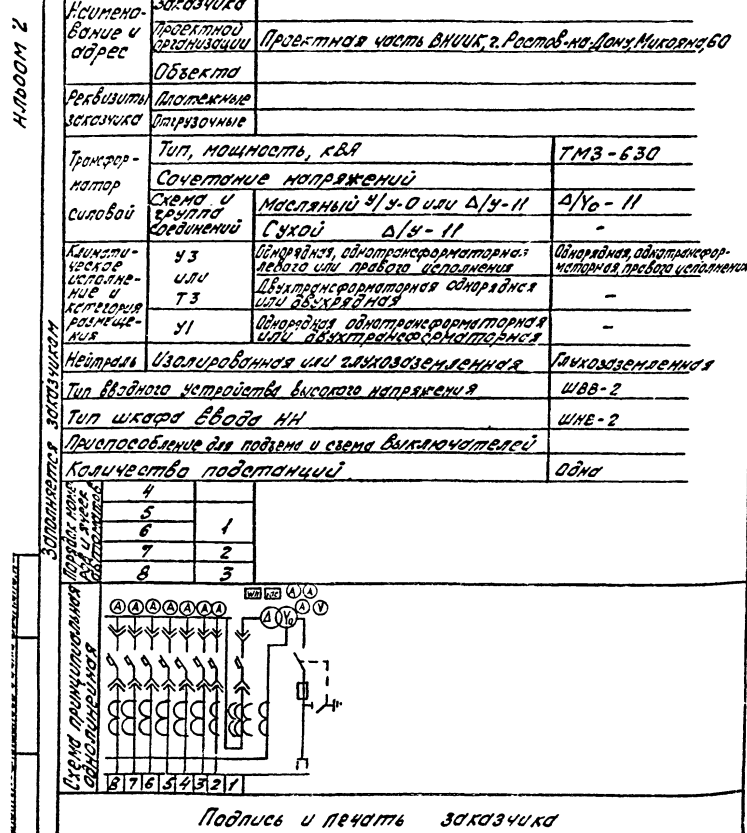 Альбом 2
Заполняется заказчиком
Наимено-
вание и
адрес
заказчика
Проектной
организации
Проектная часть ВНИИК, г. Ростов-на-Дону, Микояна, 60
Объекта
Реквизиты
заказчика
Платежные
Отгрузочные
Трансфор-
матор
силовой
Тип, мощность, кВА
ТМЗ-630
Сочетание напряжений
Схема и
группа
соединений
Масляный У/У-0 или Δ/У-11
Δ/Yo - 11
Сухой Δ/У - 11
-
Климати-
ческое
исполне-
ние и
категория
размеще-
ния
У3
или
Т3
Однорядная, однотрансформаторная
левого или правого исполнения
Однорядная, однотрансфор-
маторная, правого исполнения
Двухтрансформаторная однорядная
или двухрядная
-
У1
Однорядная однотрансформаторная
или двухтрансформаторная
-
Нейтраль
Изолированная или глухозаземленная
Глухозаземленная
Тип вводного устройства высокого напряжения
ШВВ-2
Тип шкафа ввода НН
ШНЕ-2
Приспособление для подъема и съема выключателей
Количество подстанций
Одна
4
5
6 1
7 2
8 3
Схема принципиальная
однолинейная
A A A A A A A
A A
A V
Δ Yo
8 7 6 5 4 3 2 1
Подпись и печать заказчика